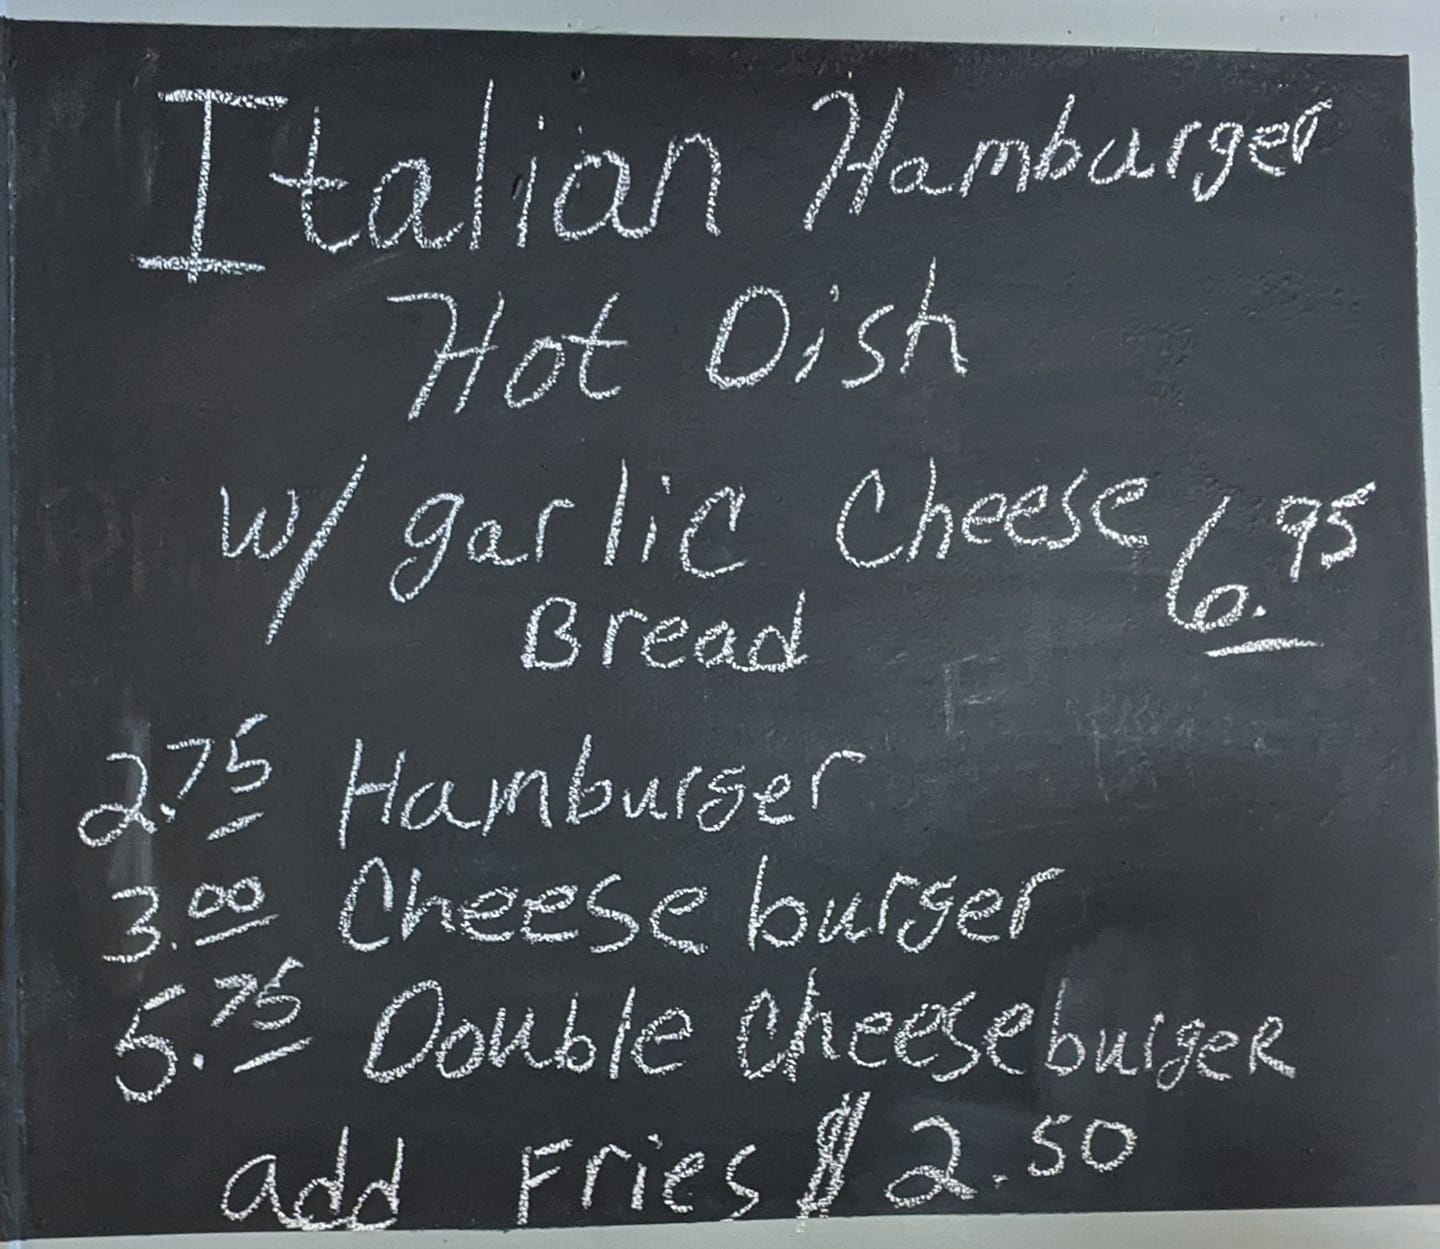 Italian Hamburger
Hot Dish
w/ garlic Cheese 6.95
Bread
2.75 Hamburger
3.00 Cheese burger
5.75 Double Cheeseburger
add Fries $2.50